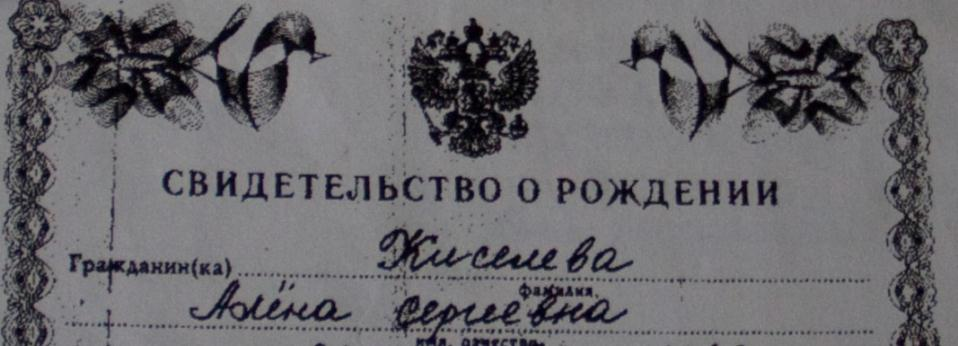 СВИДЕТЕЛЬСТВО О РОЖДЕНИИ
Гражданин(ка) Киселева
фамилия
Алёна Сергеевна
имя, отчество